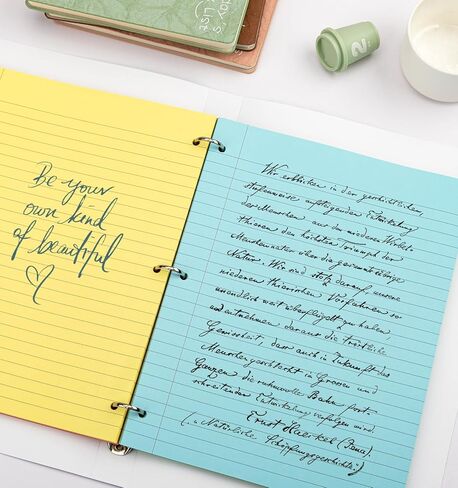 List
2
Be your
own kind
of beautiful
Wir erblicken in der geschichtlichen,
stufenweise aufsteigenden Entwickelung
der Menschen aus den niederen Wirbel-
thieren den höchsten Triumph der
Menschennatur über die gesammte übrige
Natur. Wir sind stolz darauf, unsere
niederen thierischen Vorfahren so
unendlich weit überflügelt zu haben,
und entnehmen daraus die tröstliche
Gewissheit, dass auch in Zukunft das
Menschengeschlecht im Grossen und
Ganzen die ruhmvolle Bahn fort-
schreitender Entwickelung verfolgen wird.
Ernst Haeckel (Jena).
Natürliche Schöpfungsgeschichte)